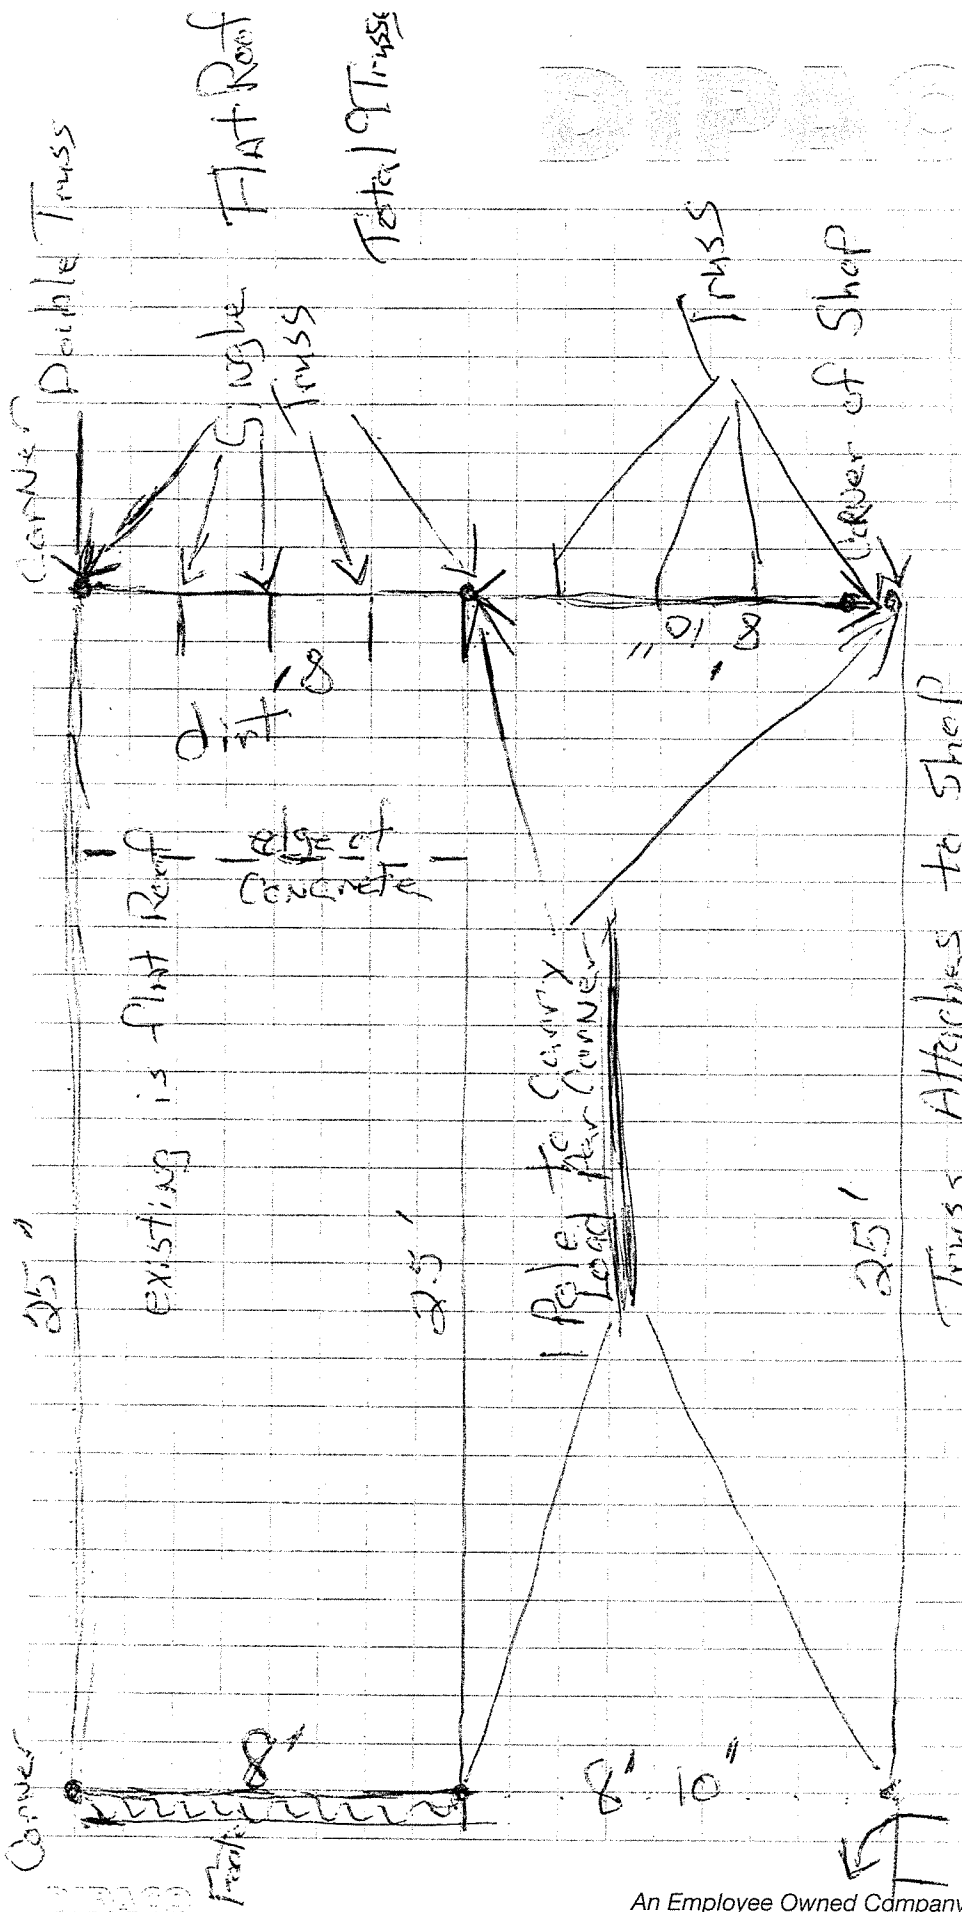 Corner
Double Truss
Flat Roof
Single
Truss
Total 9 Trusse
DIPAC
Truss
Corner of Shop
8'
dirt
8' 10"
edge of
Concrete
existing is flat Roof
25'
25'
1 Pole to Carry
Load per Corner
25'
Truss Attaches to Shop
Corner
8'
8' 10"
DIPACO
An Employee Owned Company